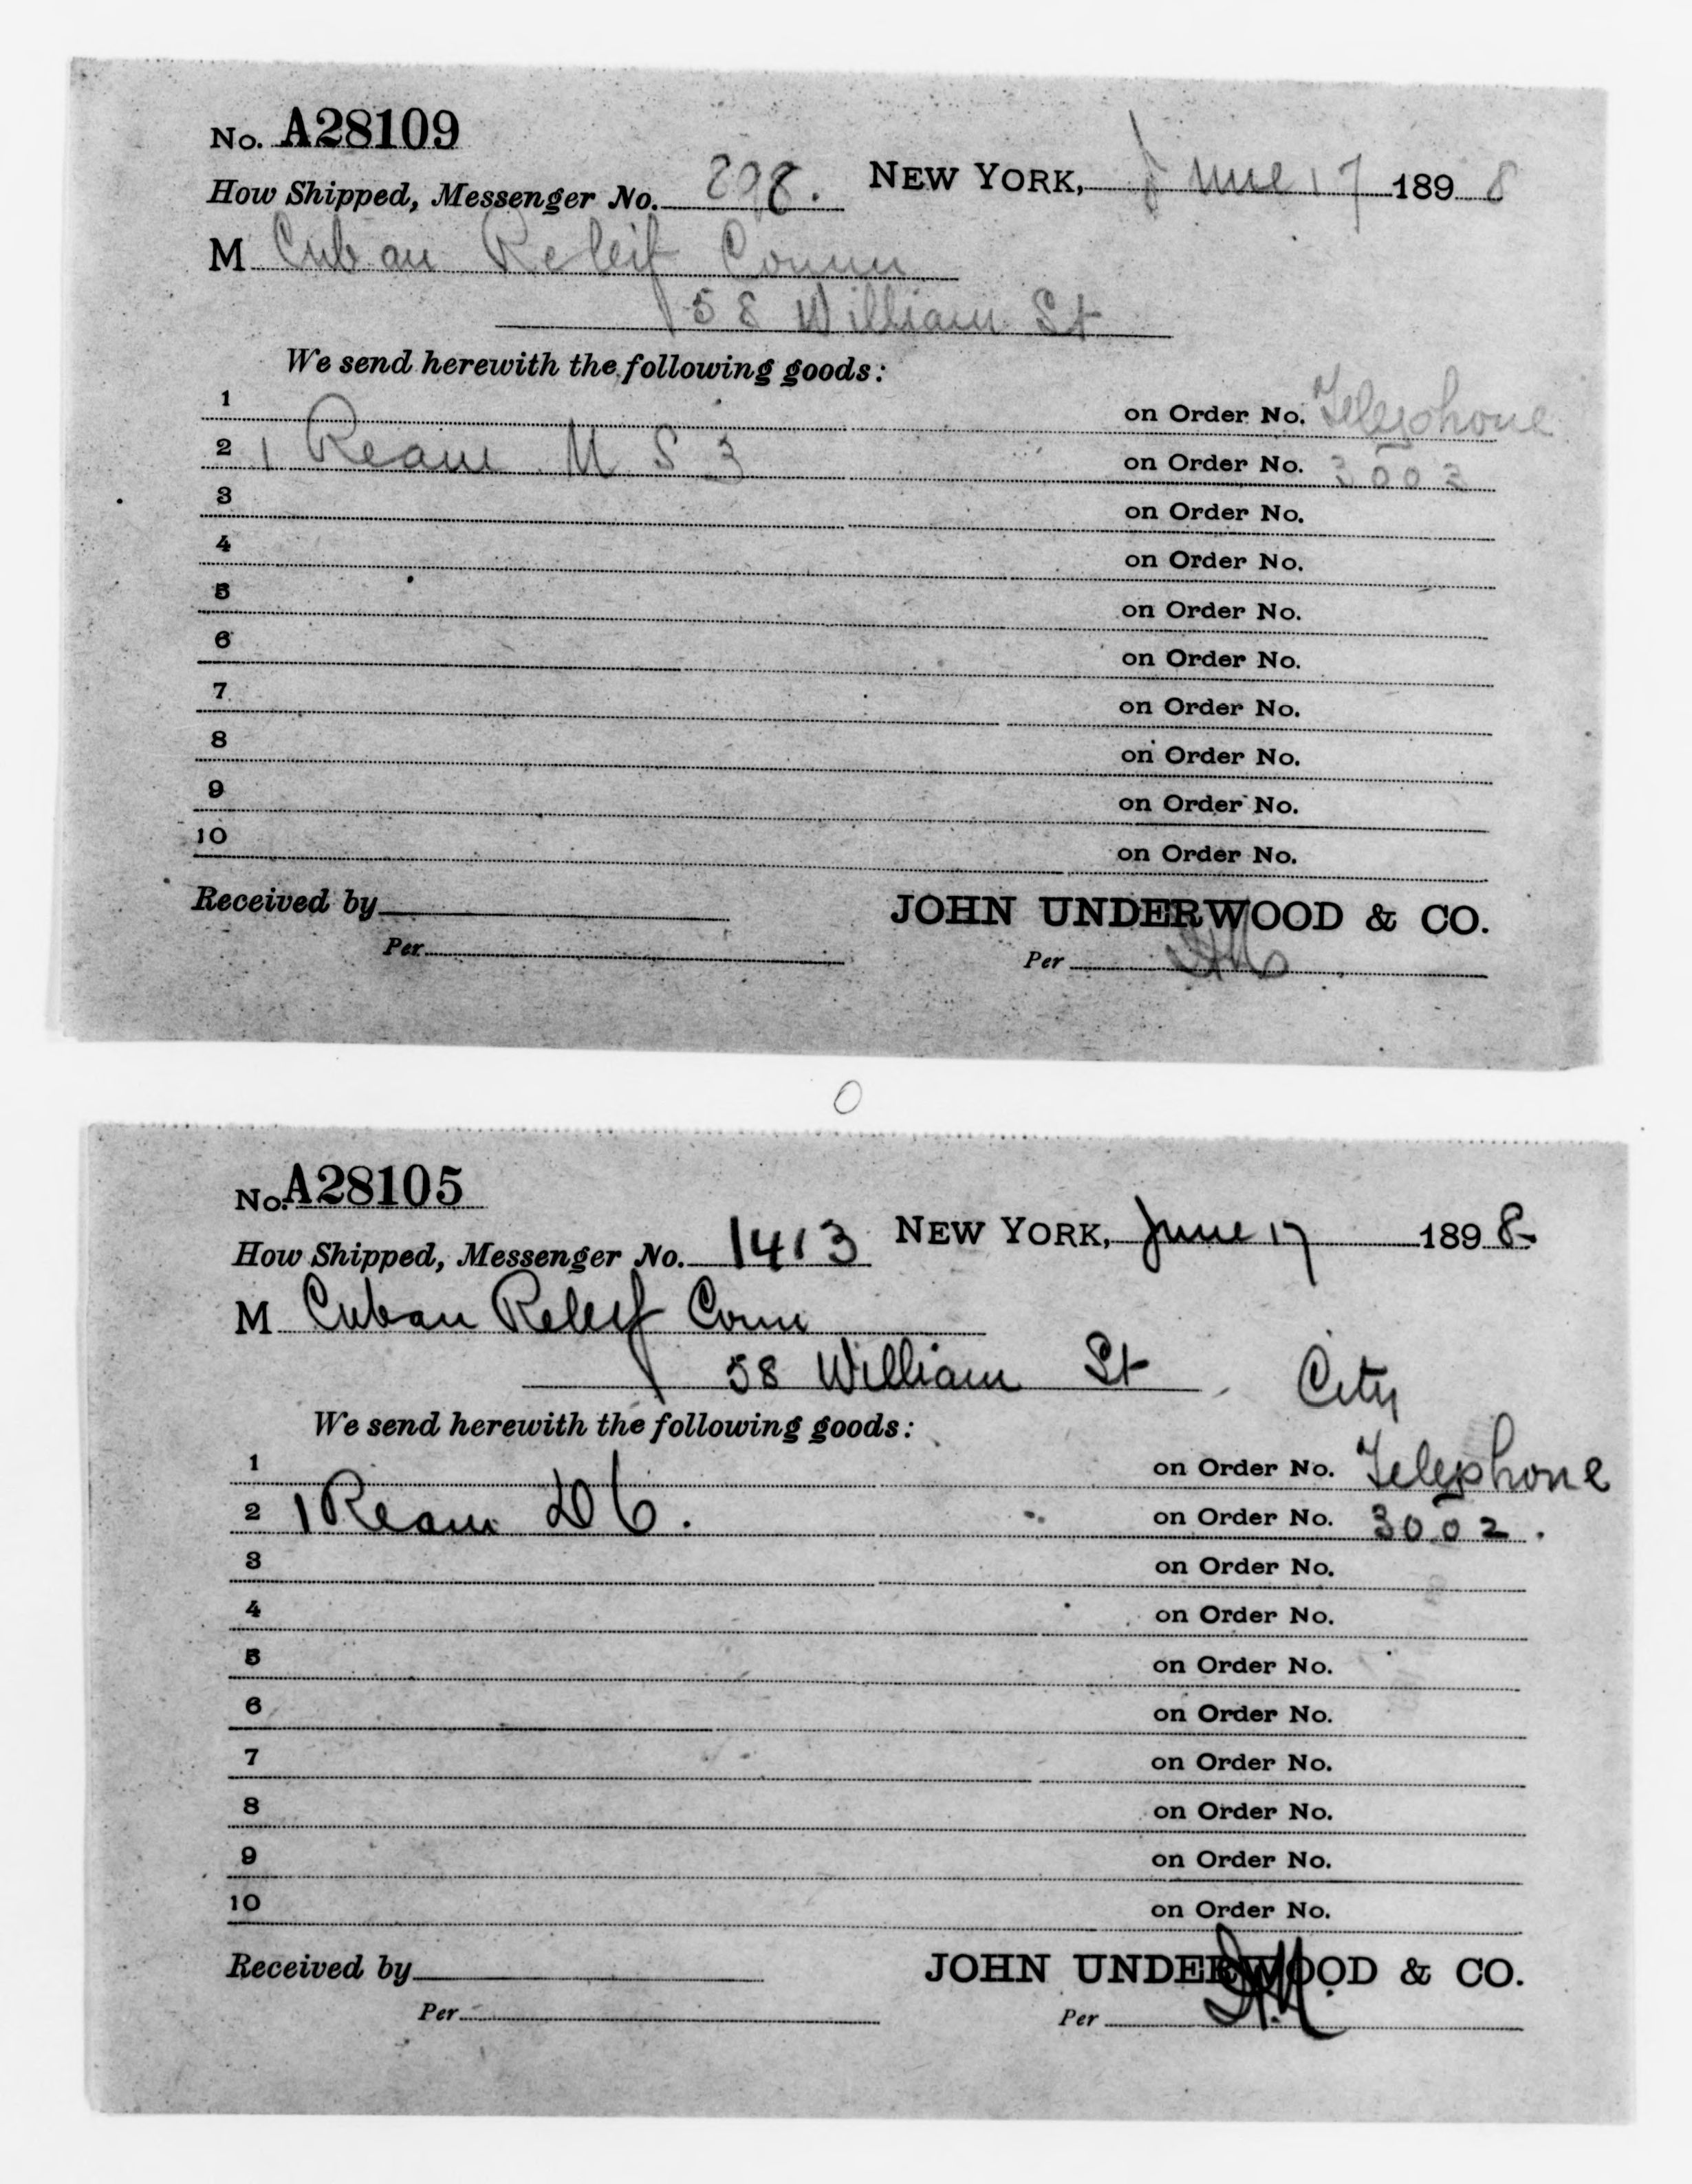 No. A28109
How Shipped, Messenger No. 298. NEW YORK, June 17 1898
M Cuban Releif Comm
58 William St
We send herewith the following goods:
1 on Order No. Telephone
2 1 Ream M S 3 on Order No. 3003
3 on Order No.
4 on Order No.
5 on Order No.
6 on Order No.
7 on Order No.
8 on Order No.
9 on Order No.
10 on Order No.
Received by JOHN UNDERWOOD & CO.
Per Per
No. A28105
How Shipped, Messenger No. 1413 NEW YORK, June 17 1898
M Cuban Releif Comm
58 William St City
We send herewith the following goods:
1 on Order No. Telephone
2 1 Ream D6. on Order No. 3002.
3 on Order No.
4 on Order No.
5 on Order No.
6 on Order No.
7 on Order No.
8 on Order No.
9 on Order No.
10 on Order No.
Received by JOHN UNDERWOOD & CO.
Per Per